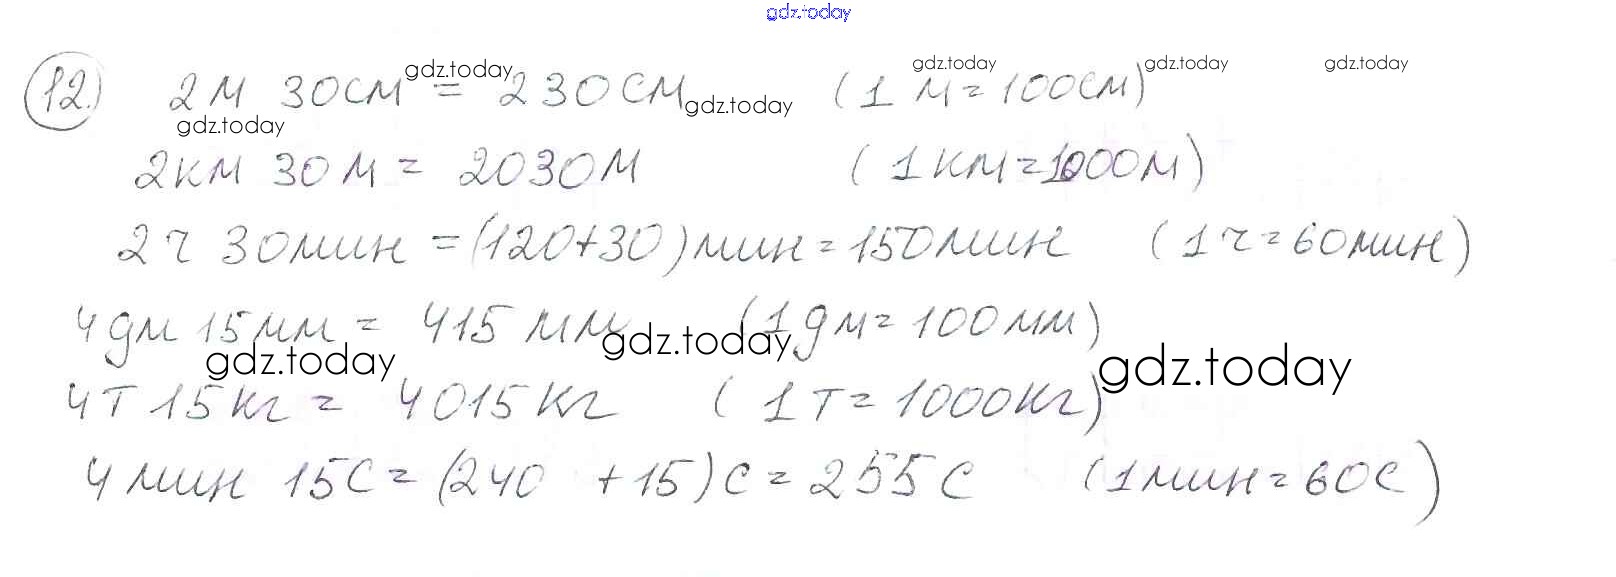 gdz.today
12.) 2м 30см = 230см (1 м = 100см)
gdz.today gdz.today gdz.today gdz.today
gdz.today gdz.today
2км 30м = 2030м (1км = 1000м)
2ч 30мин = (120+30)мин = 150мин (1ч = 60мин)
4дм 15мм = 415мм (1дм = 100мм)
gdz.today gdz.today gdz.today
4т 15кг = 4015кг (1т = 1000кг)
4мин 15с = (240 + 15)с = 255с (1мин = 60с)